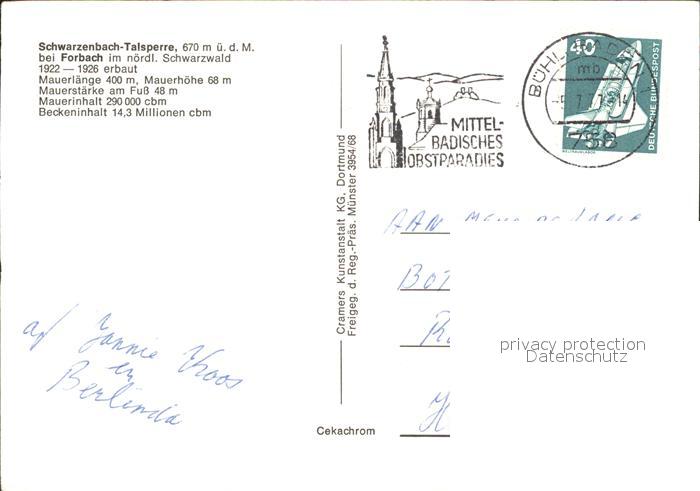 Schwarzenbach-Talsperre, 670 m ü. d. M.
bei Forbach im nördl. Schwarzwald
1922 — 1926 erbaut
Mauerlänge 400 m, Mauerhöhe 68 m
Mauerstärke am Fuß 48 m
Mauerinhalt 290 000 cbm
Beckeninhalt 14,3 Millionen cbm
MITTEL-
BADISCHES
OBSTPARADIES
BÜHL
mb
40
DEUTSCHE BUNDESPOST
Cramers Kunstanstalt KG, Dortmund
Freigeg. d. Reg.-Präs. Münster 3954/68
AAN
privacy protection
Datenschutz
Jannie Koos
en
Berlinda
Cekachrom